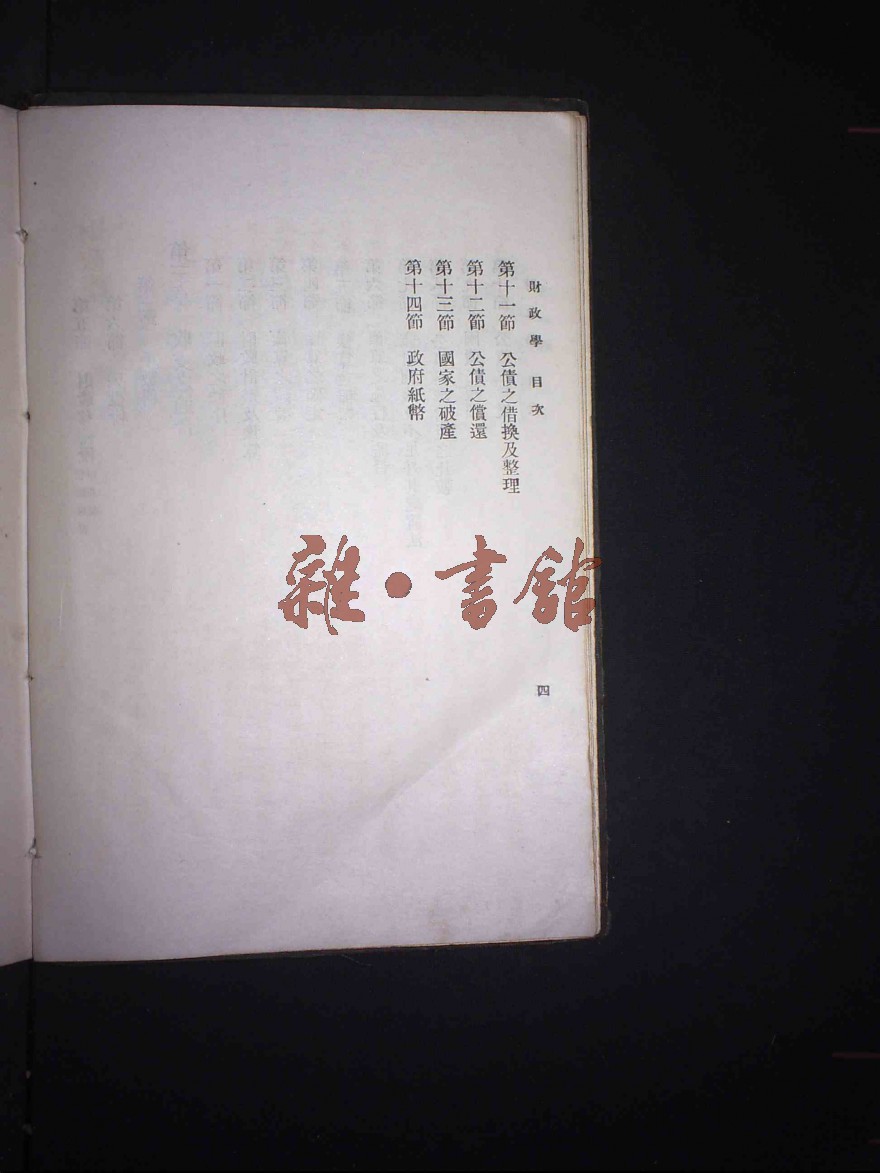 財政學 目次
四
第十一節 公債之借換及整理
第十二節 公債之償還
第十三節 國家之破產
第十四節 政府紙幣
雜·書館